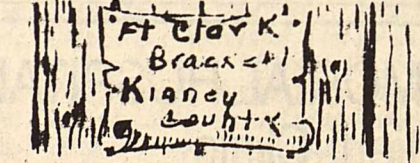 Ft Clark
Bracket
Kinney
County